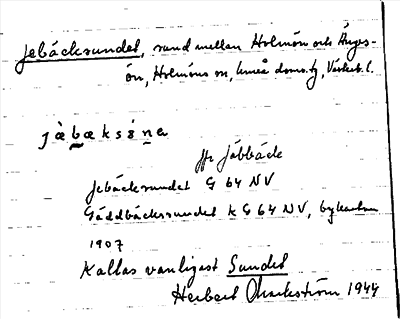 Jebäcksundet, sund mellan Holmön och Ängesön, Holmöns sn, Umeå doms.tg, Västerb. l.
jæ̀bæksøna
jfr Jäbbäcke
Jebäcksundet G 64 NV
Gäddbäckssundet kG 64 NV, bykartan
1907
Kallas vanligast Sundet
Herbert Markström 1944